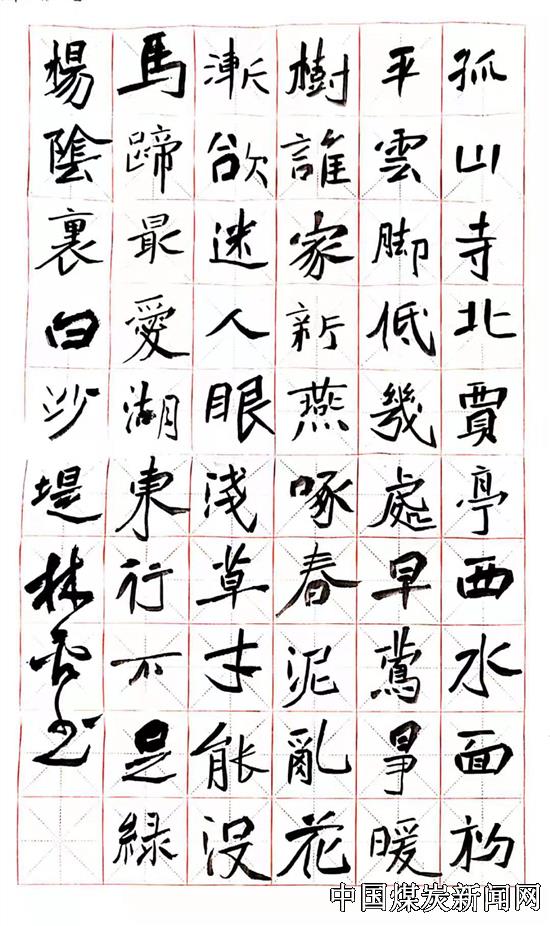 孤山寺北賈亭西水面初
平雲脚低幾處早鶯爭暖
樹誰家新燕啄春泥亂花
漸欲迷人眼淺草才能没
馬蹄最愛湖東行不足緑
楊陰裏白沙堤林书
中国煤炭新闻网